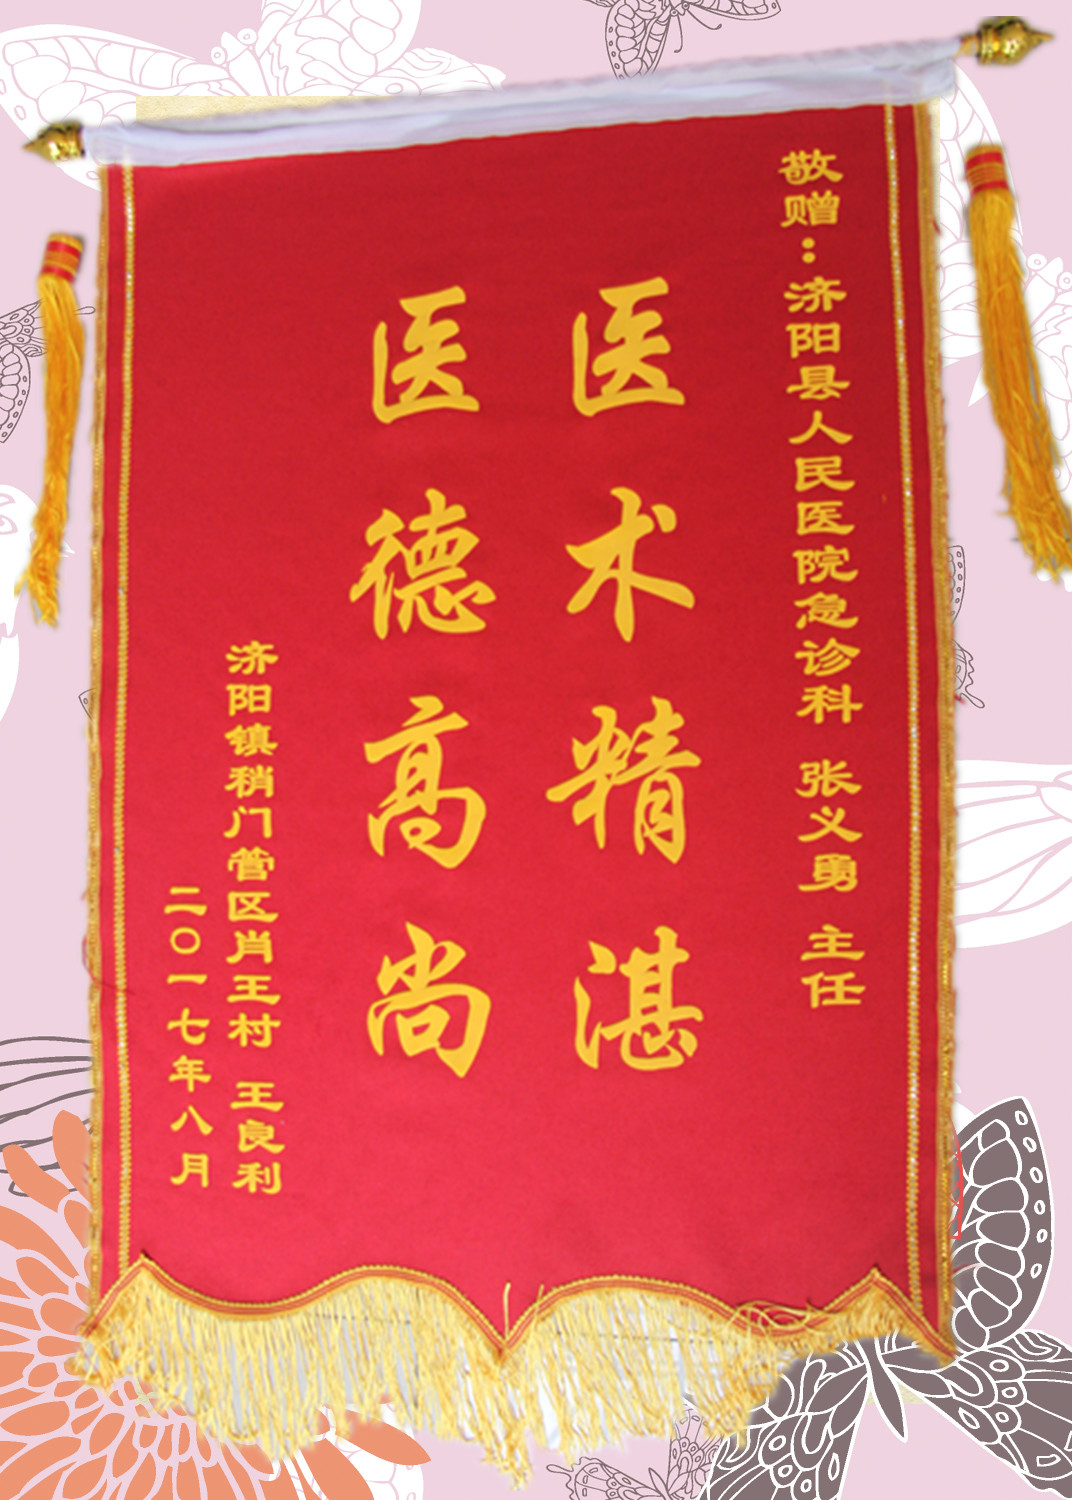 敬赠：济阳县人民医院急诊科 张义勇 主任
医术精湛
医德高尚
济阳镇稍门管区肖王村 王良利
二〇一七年八月